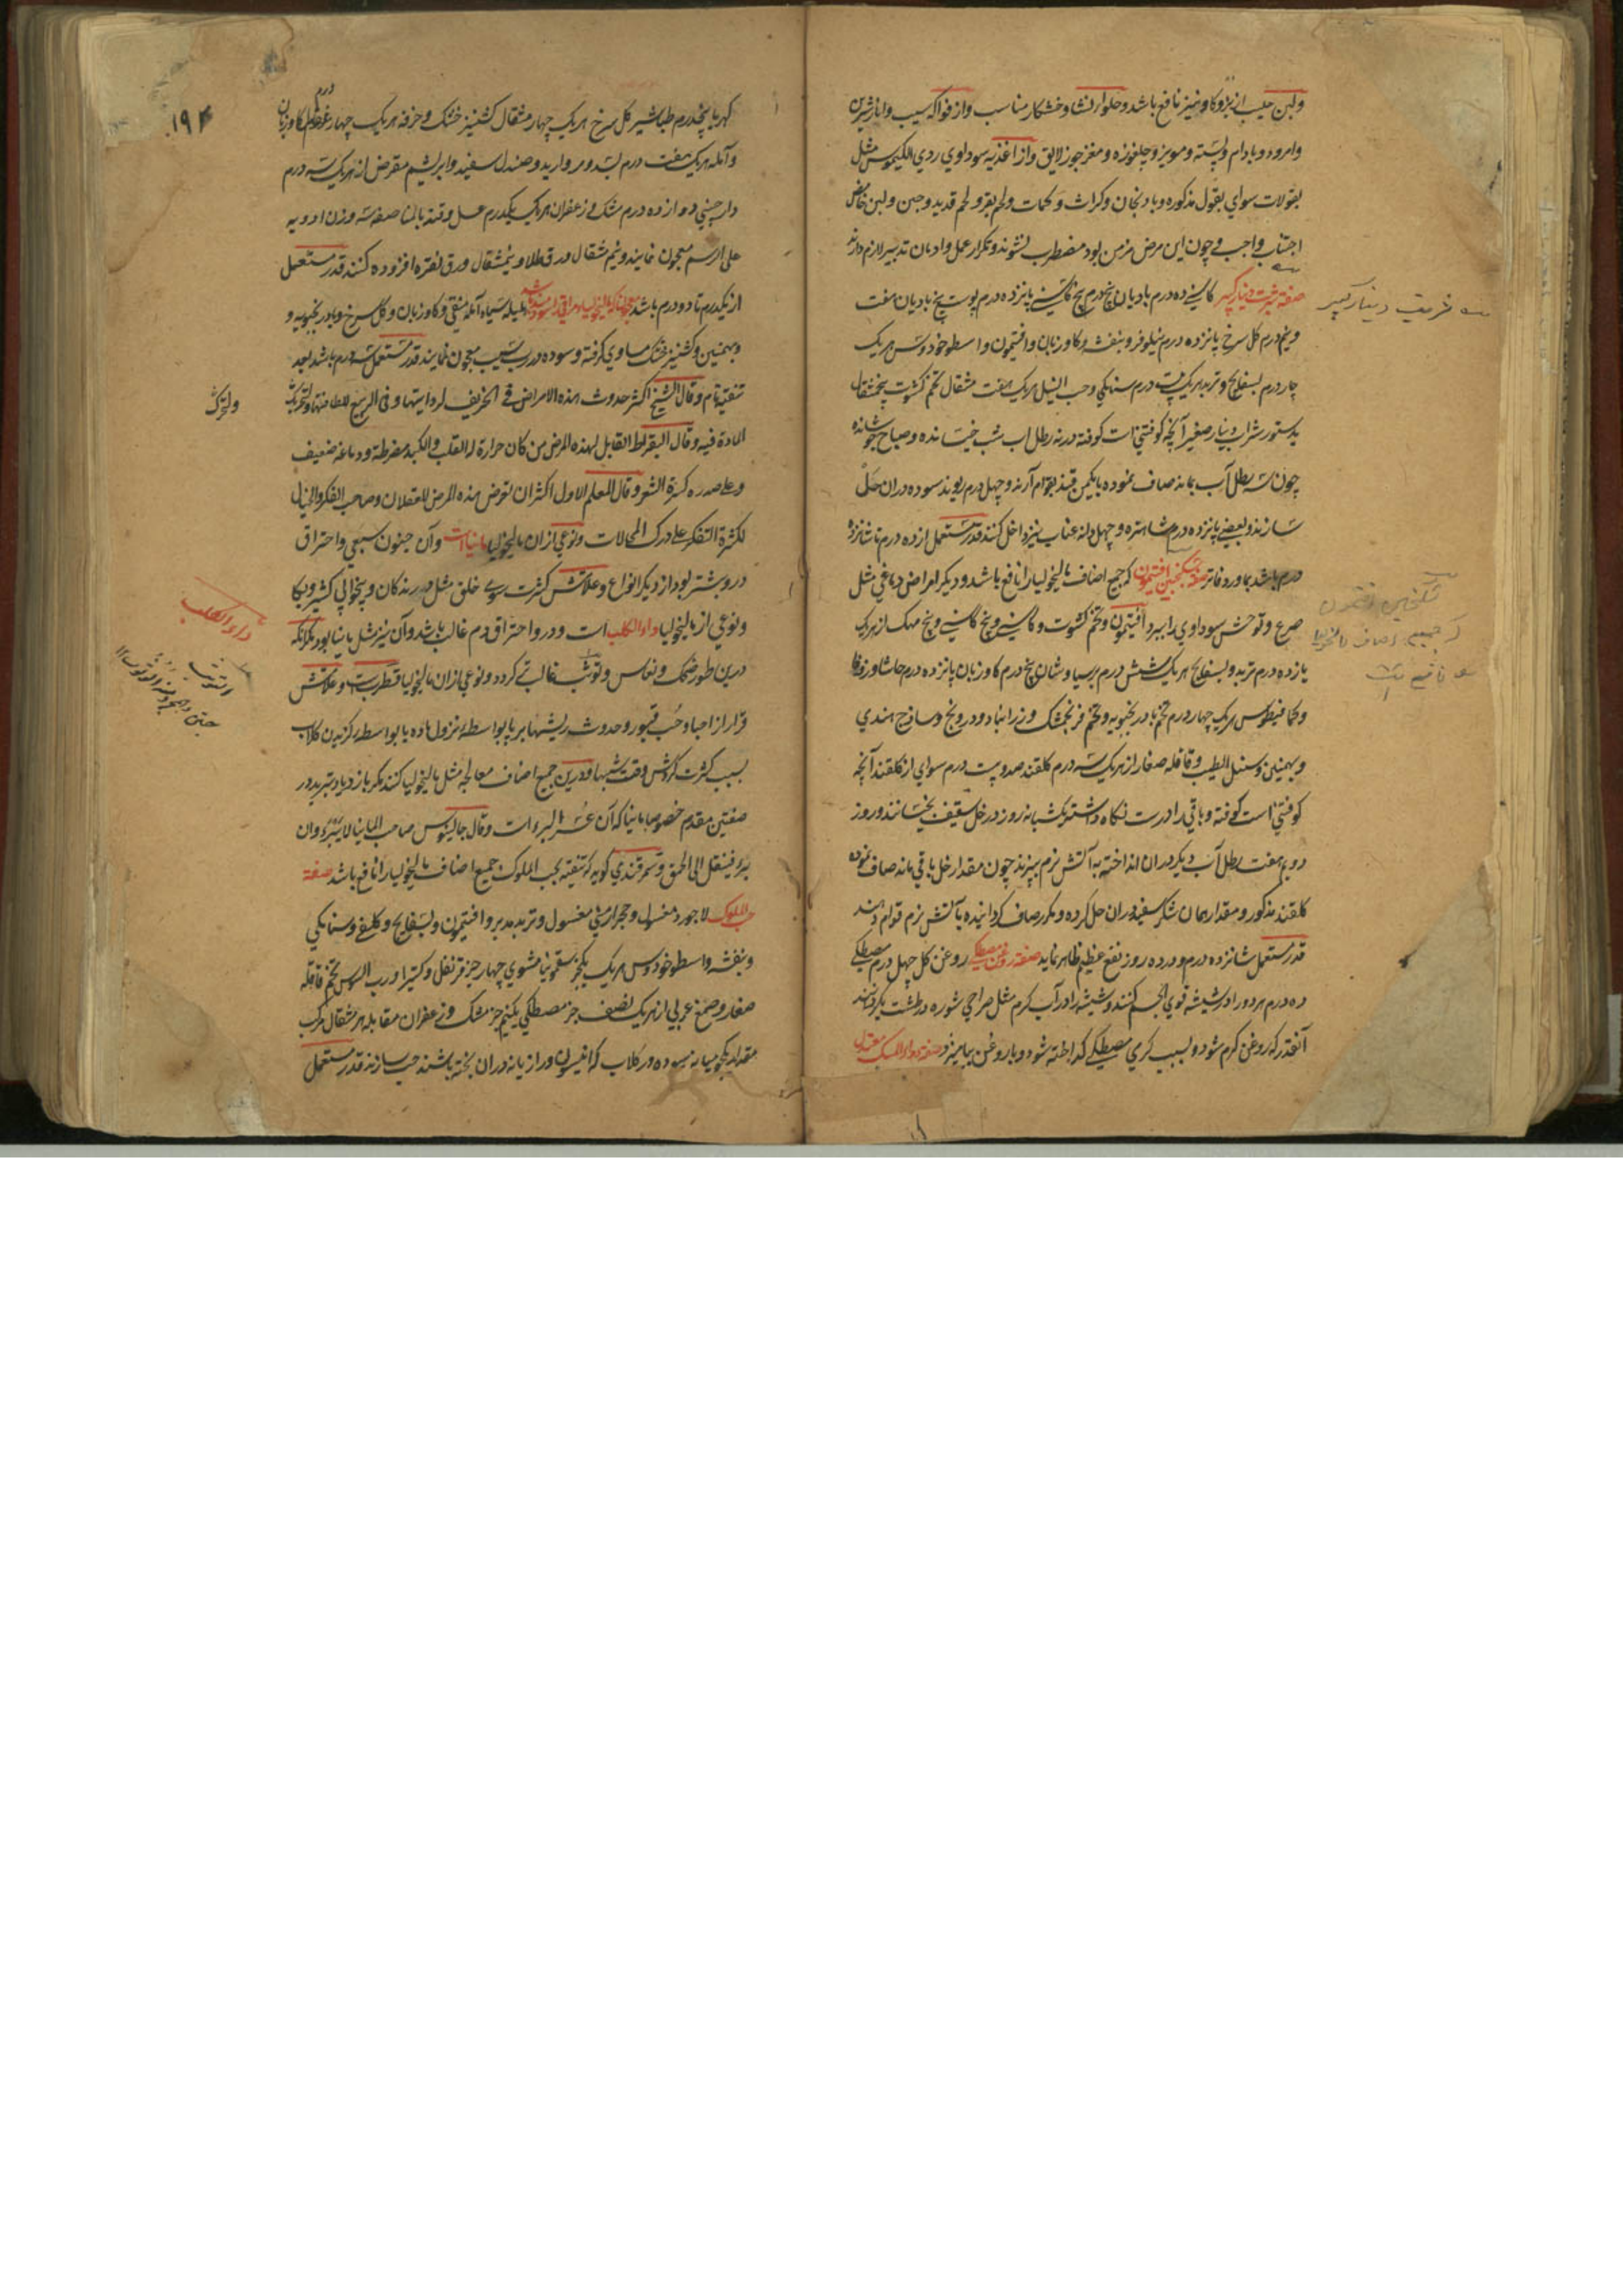 ولبن حلیب از بز و کاو نیز نافع باشد و حلوا از نشا و خشکار مناسب و از فواکه سیب و انار شیرین
وامرود و بادام و پسته و مویز و چلغوزه و مغز جوز لایق و از اغذیه سوداوي ردي الکیموس مثل
بقولات سواي بقول مذکوره و بادنجان و کراث و لحم بقر و لحم قدید و جبن و لبن حامض
اجتناب واجب و چون این مرض مزمن بود مضطرب نشوند و تکرار عمل و ادمان تدبیر لازم دارند
صفة شربت دینار کبیر کاسنے ده درم بادیان پنجدرم بیخ کاسنے پانزده درم پوست بیخ بادیان هفت
و نیم درم کل سرخ پانزده درم نیلوفر و بنفشه و کاوزبان و افتیمون و اسطوخودوس هریک
چار درم بسفایج و تربد هریک بیست درم سنامکي و حب النیل هریک هفت مثقال تخم کشوث پنجمثقال
بدستور شراب دینار صغیر آنچه کوفتني است کوفته در نه رطل اب شب خیسانده و صباح جوشانده
چون سه رطل آب بماند صاف نموده با یکمن قند بقوام آرند و چهل درم ریوند سوده دران حل
سازند و بعضے پانزده درم شاهتره و چهل دانه عناب نیز داخل کنند قدر مستعمل از ده درم تا شانزده
درم باشد صفة سکنجبین افتیمون که جمیع اصناف مالیخولیا را نافع باشد و دیکر امراض دماغي مثل
صرع و توحش سوداوي را ببرد افتیمون و تخم کشوث و کاسنے و بیخ کاسنے و بیخ مهک از هریک
یازده درم تربد و بسفایج هریک شش درم پرسیاوشان پنج درم کاوزبان پانزده درم حاشا و زوفا
و کمافیطوس هریک چهار درم تخم بادرنجبویه و تخم فرنجمشک و زرنباد و درونج و ساذج هندي
و بهمنین و سنبل الطیب و قاقله صغار از هریک سه درم کلقند صد و بیست درم سواي از کلقند آنچه
کوفتني است کوفته و باقي را درست نکاه داشته یکشبانه روز در خل ثقیف بخیسانند و روز
دویم هفت رطل آب دیکر دران انداخته به آتش نرم بپزند چون مقدار خل باقي ماند صاف نموده
کلقند مذکور و مقدار همان شکر سفید دران حل کرده و مکرر صاف کردانیده بآتش نرم قوام دهند
قدر مستعمل شانزده درم و در ده روز نفع عظیم ظاهر نماید صفة روغن مصطکے روغن کل چهل درم مصطکے
ده درم هر دو را در شیشه قوي الجسم کنند و شیشه را در آب کرم مثل صراحي شوره در طشت بکردانند
آنقدر که روغن کرم شود و بسبب کرمي مصطکے کداخته شود و با روغن بیامیزد صفة دواء المسک معتدل
شربت دینار کبیر
سکنجبین افتیمون
که جمیع اصناف مالیخولیا
را نافع است
۱۹۴
کهربا پنجدرم طباشیر کل سرخ هریک چهار مثقال کشنیز خشک و خرفه هریک چهار درم کاوزبان
و آمله هریک هفت درم بسد و مروارید و صندل سفید و ابریشم مقرض از هریک سه درم
دارچیني دوازده درم مشک و زعفران هریک یکدرم عسل و قند بالمناصفه سه وزن ادویه
علي الرسم معجون نمایند و نیم مثقال ورق طلا و نیمثقال ورق نقره افزوده کنند قدر مستعمل
از یکدرم تا دو درم باشد هلیله سیاه آمله منقي و کاوزبان و کل سرخ و بادرنجبویه و
و بهمنین و کشنیز خشک مساوي کرفته و سوده در رب سیب معجون نمایند قدر مستعمل سه درم باشد بعد
تنقیه تام و قال الشیخ اکثر حدوث هذه الامراض في الخریف لرداءتها و في الربیع للطافتها و لتحریک
المادة فیه و قال البقراط القابل لهذه المرض من کان حرارة القلب و الکبد مفرطة و دماغه ضعیف
و علي صدره کثرة الشعر و قال المعلم الاول اکثر ان تعرض هذه المرض للعقلان و صاحب الفکر و الخیال
لکثرة التفکر علي درک المحالات و نوعي از ان مالیخولیا مانیا است و آن جنون سبعي و احتراق
درو بیشتر بود از دیکر انواع و علامتش کثرت سوء خلق مثل درندکان و بیخوابي کثیر و بکا
و نوعي از مالیخولیا داء الکلب است و درو احتراق دم غالب باشد و آن نیز مثل مانیا بود مکر آنکه
درین طور ضحک و نعاس و توثب غالب تر کردد و نوعي از ان مالیخولیا قطرب است و علامتش
فرار از احیا و حب قبور و حدوث ریشها بر پا بواسطه نزول ماده یا بواسطه کزیدن کلاب
بسبب کثرت کردش وقت شبها و درین جمیع اصناف معالجه مثل مالیخولیا کنند مکر بازدیاد تبرید در
صنفین مقدم خصوصا مانیا که آن عسر البرء است و قال جالینوس صاحب المانیا لا یبرء و ان
برء فینتقل الي الحمق و سمرقندي کوید که تنقیه بحب الملوک جمیع اصناف مالیخولیا را نافع باشد صفة
حب الملوک لاجورد مغسول و حجر ارمني مغسول و تربد مدبر و افتیمون و بسفایج و سنامکي
و بنفشه و اسطوخودوس هریک یکجز سقمونیا مشوي چهار جز قرنفل و کتیرا و رب السوس تخم قاقله
صغار و صمغ عربي از هریک نصف جز مصطکي یکنیم جز مشک و زعفران مقابله هر مثقال مرکب
مقدار یکجو میانه سوده در کلاب که انیسون و رازیانه دران پخته باشند حب سازند قدر مستعمل
ولتحرک
داء الکلب